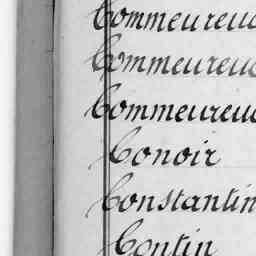 Commeureuc
Commeureuc
Commeureuc
Conoir
Constantin
Contin